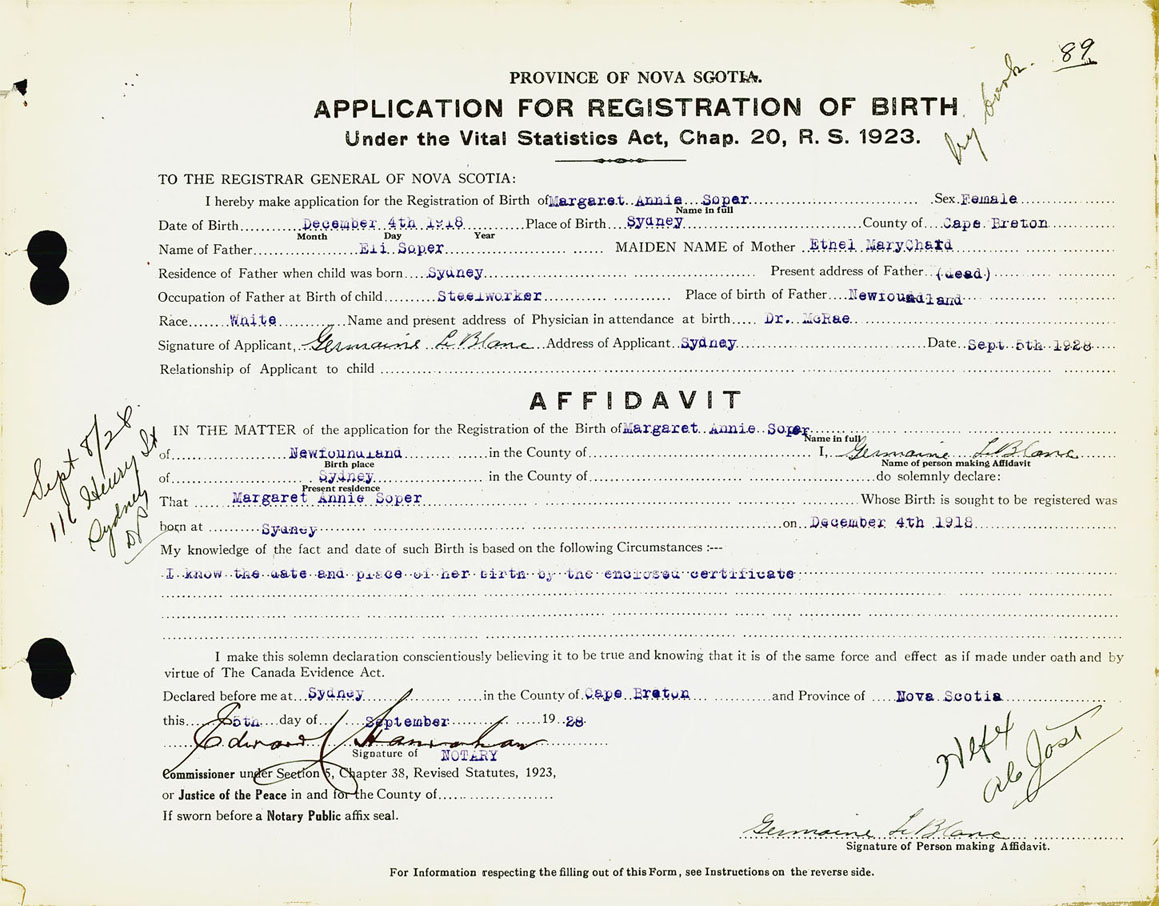 89
by book.
PROVINCE OF NOVA SCOTIA.
APPLICATION FOR REGISTRATION OF BIRTH
Under the Vital Statistics Act, Chap. 20, R. S. 1923.
TO THE REGISTRAR GENERAL OF NOVA SCOTIA:
I hereby make application for the Registration of Birth of Margaret Annie Soper Sex Female
Name in full
Date of Birth December 4th 1918 Place of Birth Sydney County of Cape Breton
Month Day Year
Name of Father Eli Soper MAIDEN NAME of Mother Ethel MaryChard
Residence of Father when child was born Sydney Present address of Father (dead)
Occupation of Father at Birth of child Steelworker Place of birth of Father Newfoundland
Race White Name and present address of Physician in attendance at birth Dr. McRae
Signature of Applicant, Germaine LeBlanc Address of Applicant Sydney Date Sept 5th 1928
Relationship of Applicant to child
AFFIDAVIT
IN THE MATTER of the application for the Registration of the Birth of Margaret Annie Soper
Name in full
of Newfoundland in the County of I, Germaine LeBlanc
Birth place Name of person making Affidavit
of Sydney in the County of do solemnly declare:
Present residence
That Margaret Annie Soper Whose Birth is sought to be registered was
born at Sydney on December 4th 1918
My knowledge of the fact and date of such Birth is based on the following Circumstances :---
I know the date and place of her birth by the enclosed certificate
I make this solemn declaration conscientiously believing it to be true and knowing that it is of the same force and effect as if made under oath and by
virtue of The Canada Evidence Act.
Declared before me at Sydney in the County of Cape Breton and Province of Nova Scotia
this 5th day of September 19 28
Edward J Hanrahan
Signature of NOTARY
Commissioner under Section 5, Chapter 38, Revised Statutes, 1923,
or Justice of the Peace in and for the County of
If sworn before a Notary Public affix seal.
Germaine LeBlanc
Signature of Person making Affidavit.
For Information respecting the filling out of this Form, see Instructions on the reverse side.
Sept 8/28
116 Henry St
Sydney
Jost